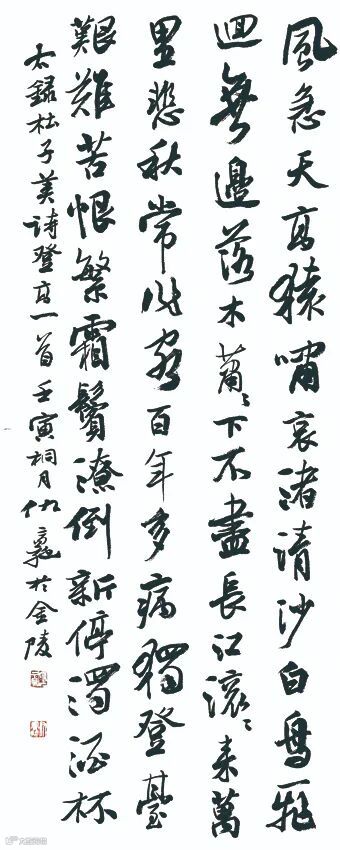 風急天高猿嘯哀渚清沙白鳥飛
迴無邊落木蕭〻下不盡長江滾〻來萬
里悲秋常作客百年多病獨登臺
艱難苦恨繁霜鬢潦倒新停濁酒杯
右錄杜子美詩登高一首壬寅桐月仇於金陵